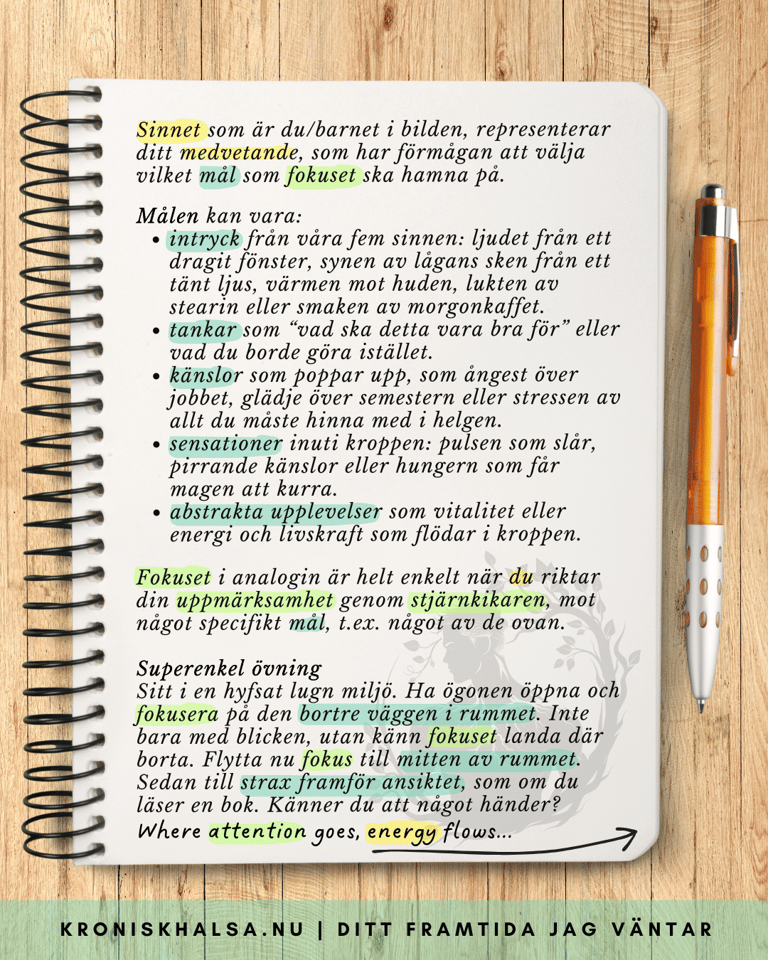 Sinnet som är du/barnet i bilden, representerar
ditt medvetande, som har förmågan att välja
vilket mål som fokuset ska hamna på.
Målen kan vara:
• intryck från våra fem sinnen: ljudet från ett
dragit fönster, synen av lågans sken från ett
tänt ljus, värmen mot huden, lukten av
stearin eller smaken av morgonkaffet.
• tankar som “vad ska detta vara bra för” eller
vad du borde göra istället.
• känslor som poppar upp, som ångest över
jobbet, glädje över semestern eller stressen av
allt du måste hinna med i helgen.
• sensationer inuti kroppen: pulsen som slår,
pirrande känslor eller hungern som får
magen att kurra.
• abstrakta upplevelser som vitalitet eller
energi och livskraft som flödar i kroppen.
Fokuset i analogin är helt enkelt när du riktar
din uppmärksamhet genom stjärnkikaren, mot
något specifikt mål, t.ex. något av de ovan.
Superenkel övning
Sitt i en hyfsat lugn miljö. Ha ögonen öppna och
fokusera på den bortre väggen i rummet. Inte
bara med blicken, utan känn fokuset landa där
borta. Flytta nu fokus till mitten av rummet.
Sedan till strax framför ansiktet, som om du
läser en bok. Känner du att något händer?
Where attention goes, energy flows...
KRONISKHALSA.NU | DITT FRAMTIDA JAG VÄNTAR